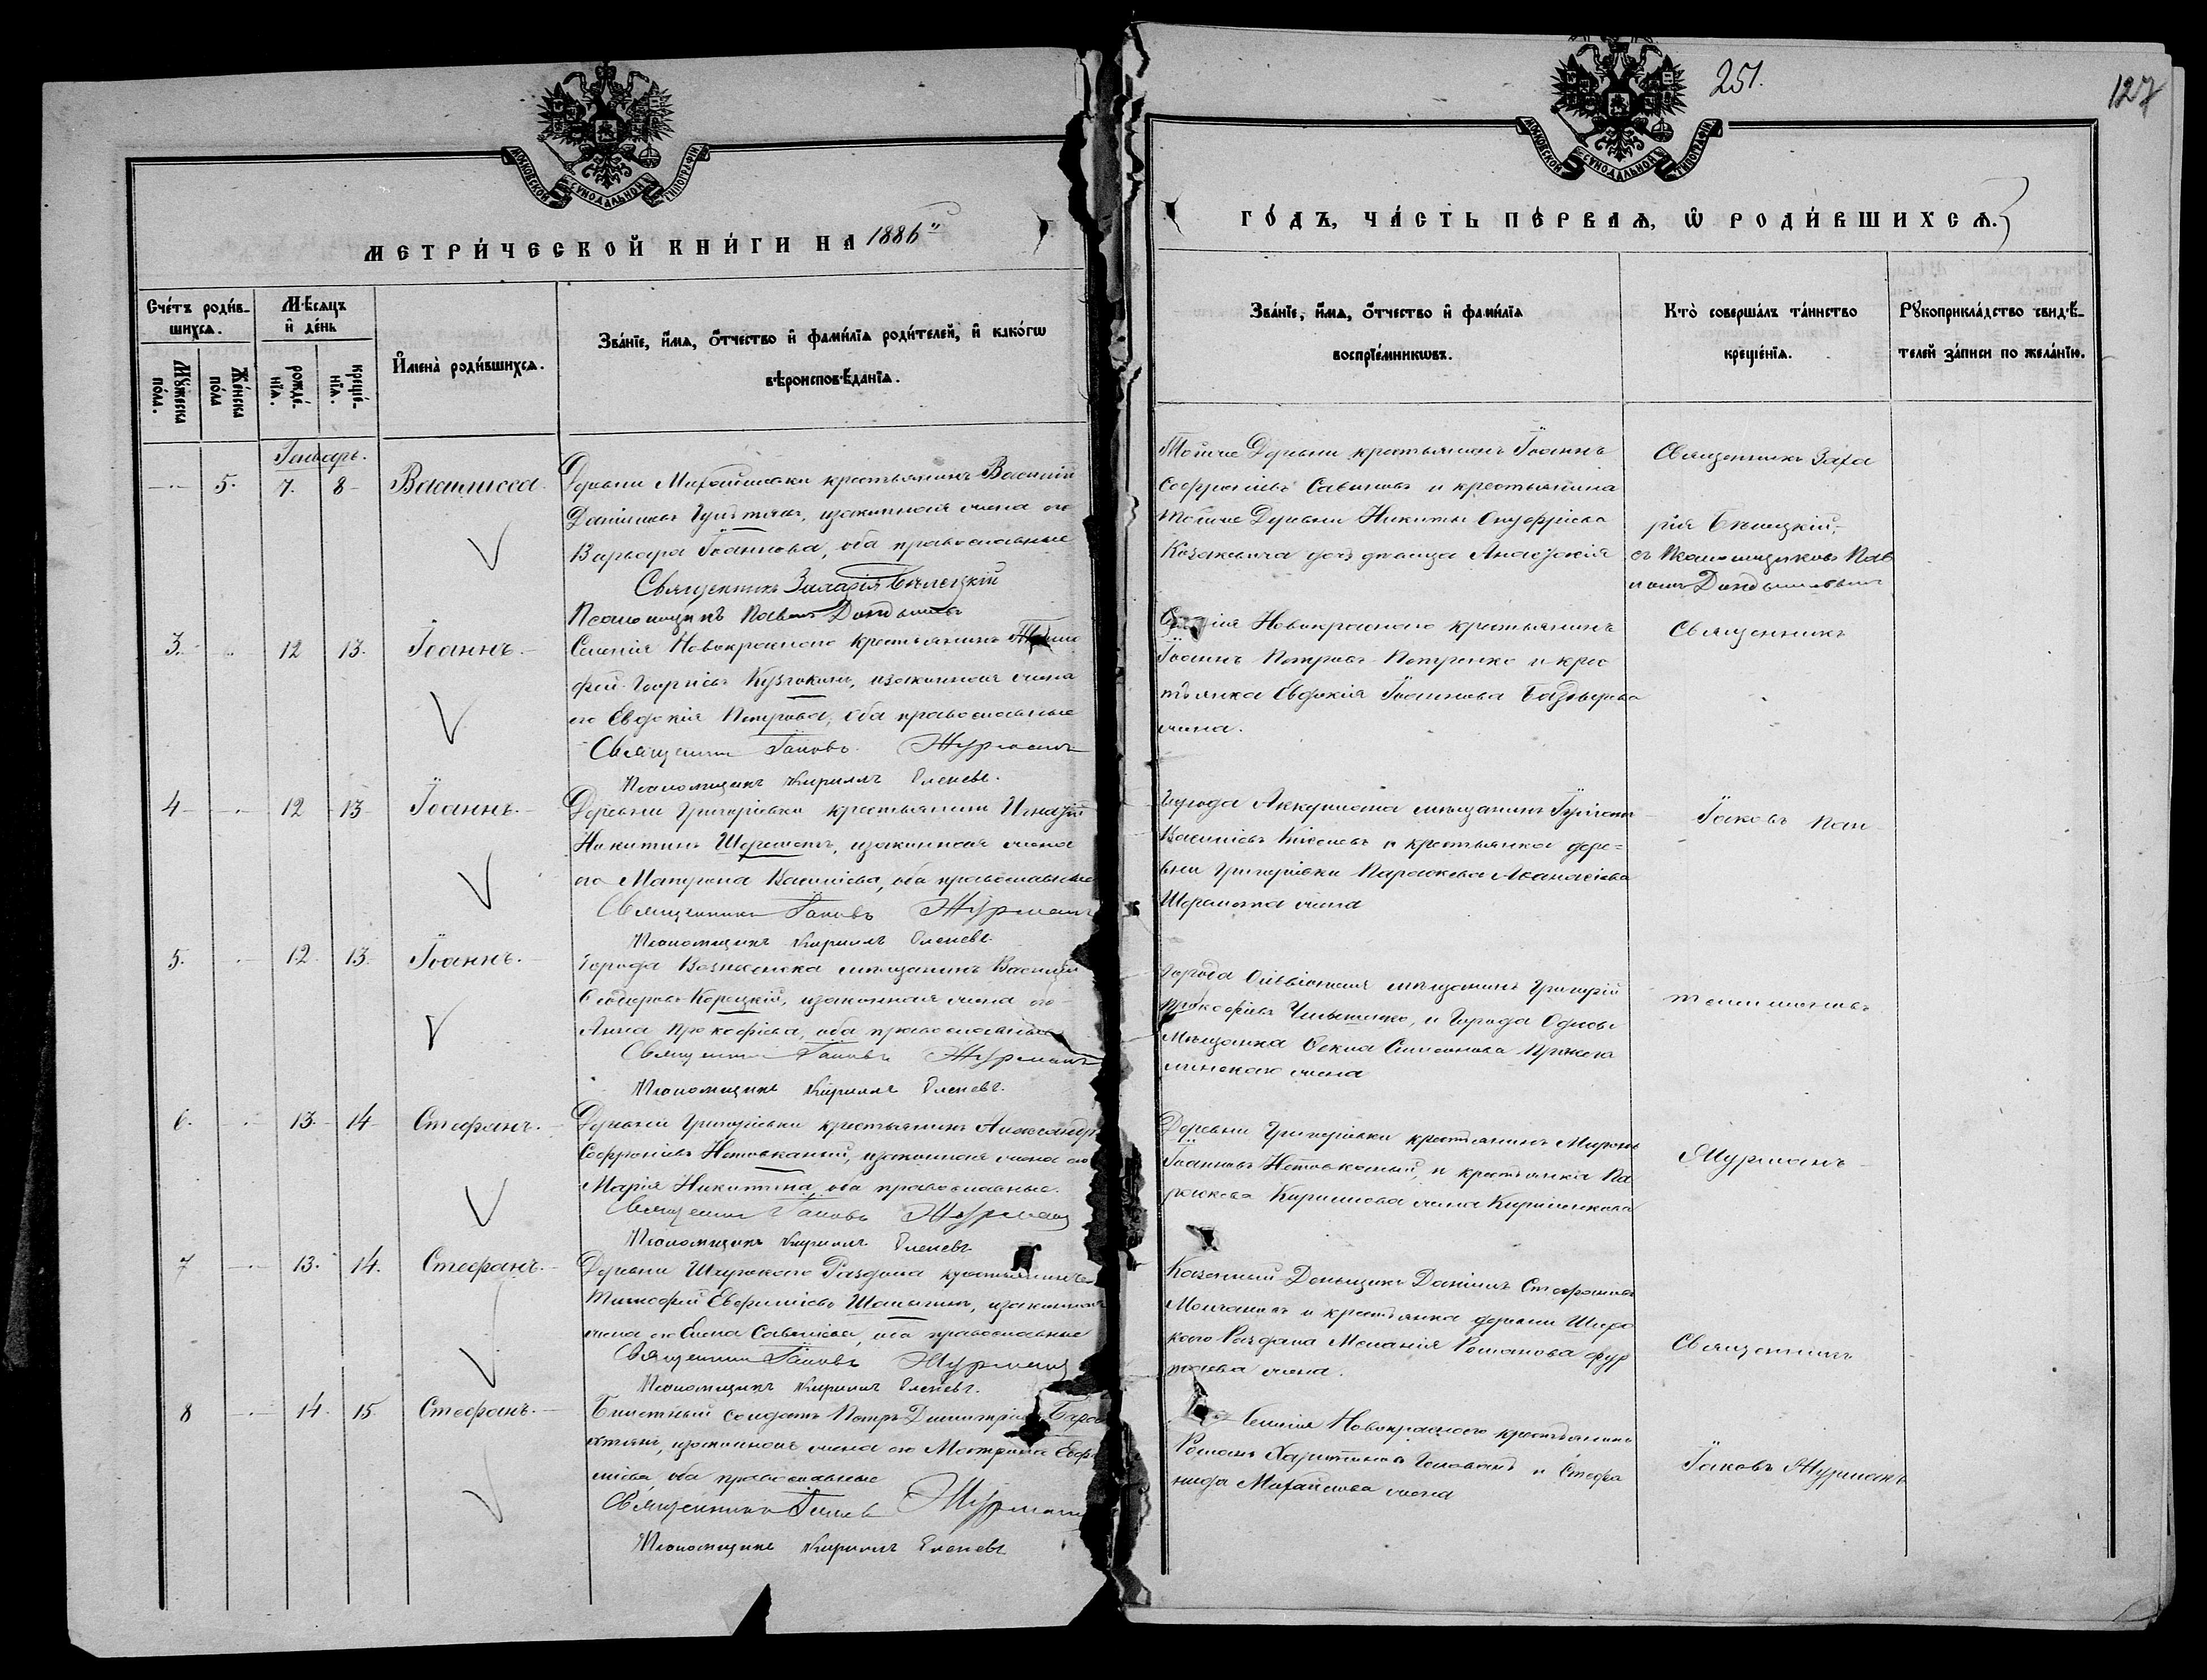 251.
127
МОСКОВСКОЙ СѴНОДАЛЬНОЙ ТИПОГРАФІИ
МОСКОВСКОЙ СѴНОДАЛЬНОЙ ТИПОГРАФІИ
МЕТРИ́ЧЕСКОЙ КНИ́ГИ НА 1886й
ГО́ДЪ, ЧА́СТЬ ПЕ́РВАѦ, Ѡ҆ РОДИ́ВШИХСѦ.
Сче́тъ роди́в-
шихсѧ.
Мѹ́жеска
по́ла.
Же́нска
по́ла
Мѣ́сѧцъ
и҆ де́нь
рожде́-
нїѧ.
креще́-
нїѧ.
И҆мена̀ роди́вшихсѧ.
Зва́нїе, и҆́мѧ, ѻ҆́тчество и҆ фами́лїѧ роди́телей, и҆ како́гѡ
вѣроисповѣ́данїѧ.
Зва́нїе, и҆́мѧ, ѻ҆́тчество и҆ фами́лїѧ
воспрїе́мникѡвъ.
Кто̀ соверша́лъ та́инство
креще́нїѧ.
Рꙋкоприкла́дство свидѣ́-
телей за́писи по жела́нїю.
Генварь.
5. 7. 8 Василисса
Деревни Михайловки крестьянинъ Василій
Даніиловъ, и законная жена его
Варвара Іоаннова, оба православные
Священникъ Захарія Бѣлецкій
Псаломщикъ Павелъ
Тойже Деревни крестьянинъ Іоаннъ
Софроніевъ Савиновъ и крестьянина
тойже Деревни Никиты Онуфріева
Козакевича дочь дѣвица Анастасія
Священникъ Заха
рія Бѣлецкій,
съ Псаломщикомъ Пав
ломъ
3. 12 13. Іоаннъ.
Селенія Новокраснаго крестьянинъ
фей Георгіевъ, и законная жена
его Евдокія Петрова, оба православные
Священникъ Іаковъ Мурманъ
Псаломщикъ Кириллъ Еленевъ.
Селенія Новокраснаго крестьянинъ
Іоаннъ Петровъ Петренко и крес
тьянка Евдокія Іоаннова
жена.
Священникъ
4 12 13 Іоаннъ.
Деревни Григоріевки крестьянинъ Игнатій
Никитинъ Шереметъ, и законная жена
его Матрона Василіева, оба православные
Священникъ Іаковъ Мурманъ
Псаломщикъ Кириллъ Еленевъ.
Города Аккермана мѣщанинъ
Василіевъ и крестьянка дере-
вни Григоріевки Параскева Аѳанасіева
Шеремета жена
Іаковъ
5. 12. 13. Іоаннъ.
Города Вознесенска мѣщанинъ Василій
Ѳеодоровъ Корецкій, и законная жена его
Анна Прокофіева, оба православные
Священникъ Іаковъ Мурманъ
Псаломщикъ Кириллъ Еленевъ.
Города Ольвіополя мѣщанинъ Григорій
Прокофіевъ, и Города Одессы
Мѣщанка Ѳекла Симеонова
жена
6. 13. 14 Стефанъ.
Деревни Григоріевки крестьянинъ Александръ
Софроніевъ, и законная жена его
Марія Никитина, оба православные.
Священникъ Іаковъ Мурманъ
Псаломщикъ Кириллъ Еленевъ
Деревни Григоріевки крестьянинъ Миронъ
Іоанновъ, и крестьянка Па
раскева Кириллова жена
Мурманъ
7 13. 14. Стефанъ.
Деревни Широкаго Раздола крестьянинъ
Тимофей Евфиміевъ, и законная
жена его Елена Савеліева, оба православные
Священникъ Іаковъ Мурманъ
Псаломщикъ Кириллъ Еленевъ.
Казенный Деньщикъ Даніилъ Стефановъ
Молчановъ и крестьянка деревни Широ
каго Раздола Меланія Романова
жена.
Священникъ
8 14. 15. Стефанъ.
Билетный солдатъ Петръ Димитріевъ
и законная жена его Матрона
оба православные
Священникъ Іаковъ Мурманъ
Псаломщикъ Кириллъ Еленевъ
Селенія Новокраснаго крестьянинъ
Романъ Харитоновъ и Стефа
нида Михайлова жена
Іаковъ Мурманъ